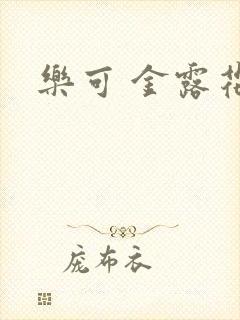 樂可 金露花
庞布衣